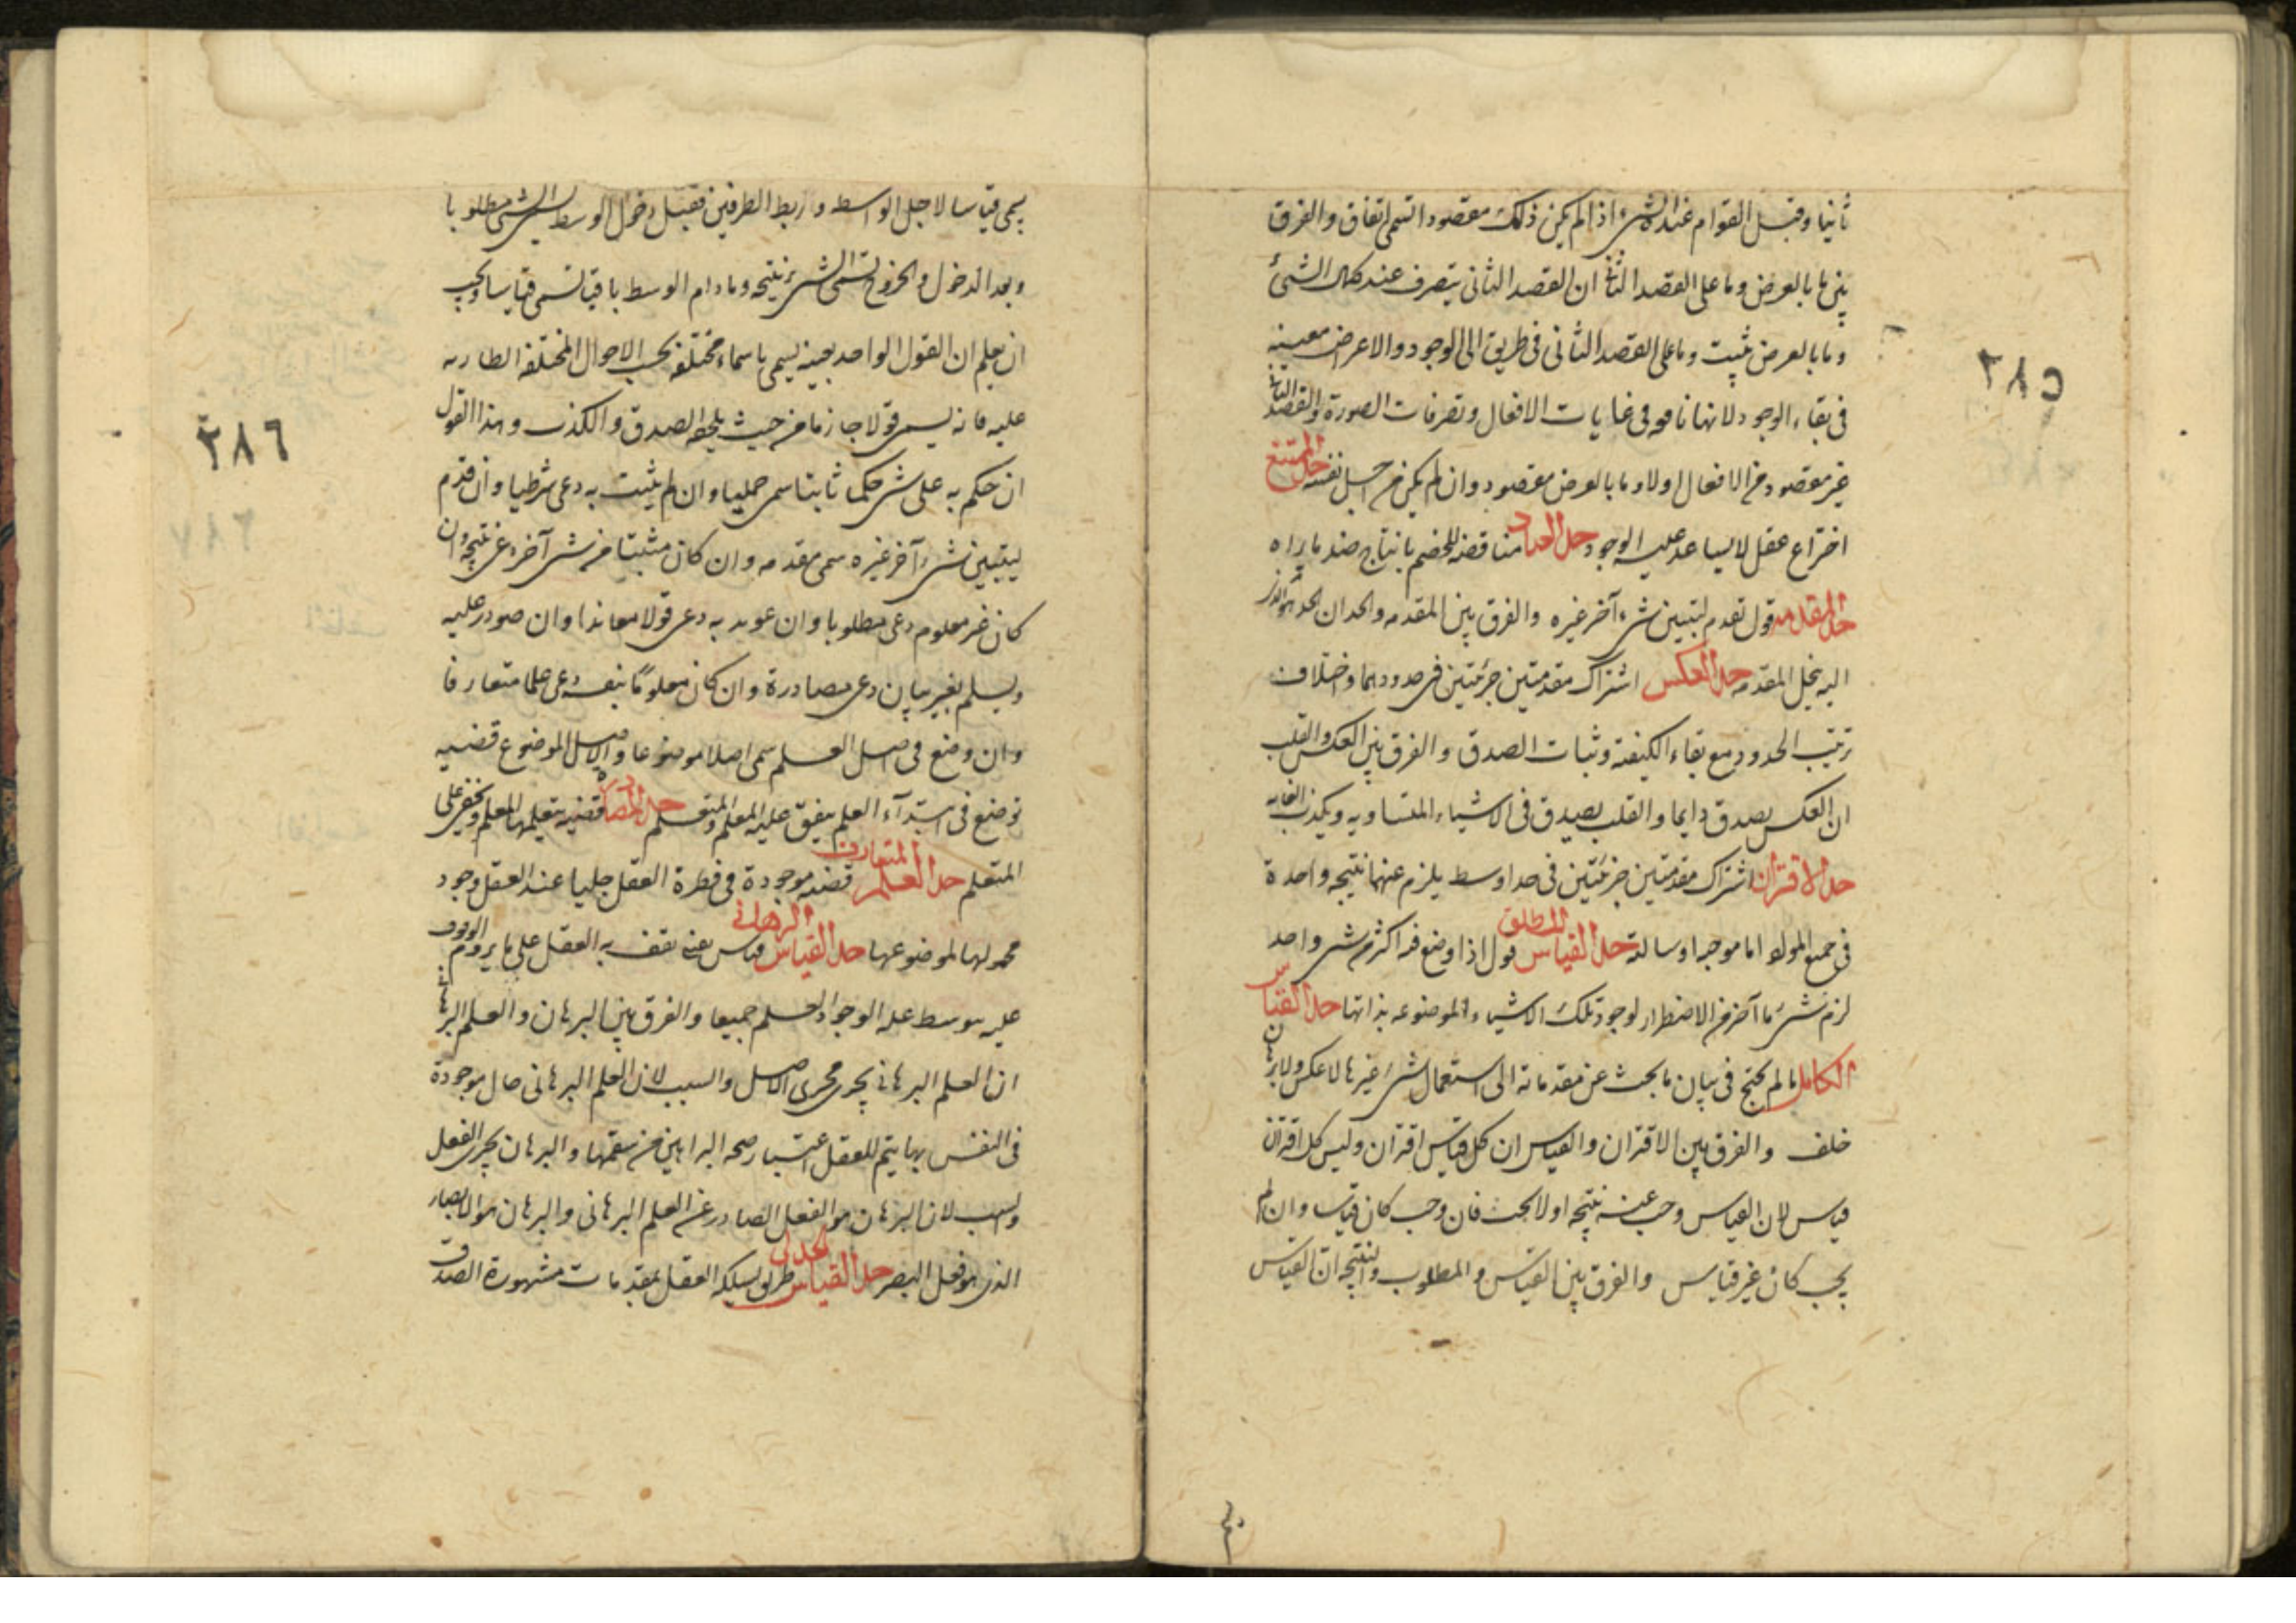 ثانيا وقبل القوام عند الشيء اذا لم يكن ذلك مقصودا تسمى اتفاق والفرق
بين ما بالعرض وما على القصد الثاني ان القصد الثاني يتصرف عند كمال الشيء
وما بالعرض يثبت وما على القصد الثاني في طريق الى الوجود والاعراض معينة
في بقاء الوجود لانها نافعه في غايات الافعال وتصرفات الصورة والقصد الثاني
غير مقصود من الافعال اولا وما بالعرض مقصود وان لم يكن من اجل نفسه حد الممتنع
اختراع عقل لا يساعد عليه الوجود حد العناد مناقضه للخصم بانتاج ضد ما يراه
حد المقدمه قول تقدم لتبيين شيء آخر غيره والفرق بين المقدمه والحد ان الحد هو الذي
اليه ينحل المقدمه حد العكس اشتراك مقدمتين جزئتين في حدودهما واختلاف
ترتيب الحدود مع بقاء الكيفية وثبات الصدق والفرق بين العكس والقلب
ان العكس يصدق دايما والقلب يصدق في الاشياء المتساويه ويكذب
حد الاقتران اشتراك مقدمتين جزئتين في حد اوسط يلزم عنهما نتيجه واحدة
في جميع المولو اما موجبه او سالبة حد القياس المطلق قول اذا وضع فيه اكثر من شيء واحد
لزم شيء ما آخر من الاضطرار لوجود تلك الاشياء الموضوعه بذاتها حد القياس
الكامل ما لم يحتج في بيان ما يجب عن مقدماته الى استعمال شيء غيرها لا عكس ولا برهان
خلف والفرق بين الاقتران والقياس ان كل قياس اقتران وليس كل اقتران
قياس لان القياس وجب عنه نتيجه او لا يجب فان وجب كان قياسا وان لم
يجب كان غير قياس والفرق بين القياس والمطلوب والنتيجه ان القياس
٣٨٥
يسمى قياسا لاجل الواسط وربط الطرفين فقبل دخول الوسط يسمى الشيء مطلوبا
وبعد الدخول والخروج تسمى الشيء نتيجه وما دام الوسط باقيا تسمى قياسا ويجب
ان يعلم ان القول الواحد بعينه يسمى باسماء مختلفه بحسب الاحوال المختلفه الطاريه
عليه فانه يسمى قولا جازما من حيث يلحقه الصدق والكذب وهذا القول
ان حكم به على شيء حكما ثابتا سمى حمليا وان لم يثبت به دعى شرطيا وان قدم
ليتبين شيء آخر غيره سمى مقدمه وان كان مثبتا من شيء آخر دعى نتيجه وان
كان غير معلوم دعى مطلوبا وان عوند به دعى قولا معاندا وان صودر عليه
ويسلم بغير بيان دعى مصادرة وان كان معلوما بنفسه دعى علما متعارفا
وان وضع في اصل العلم سمى اصلا موضوعا والاصل الموضوع قضيه
توضع في ابتدآء العلم يتفق عليه المعلم والمتعلم حد المصادره قضيه يتعلمها المعلم ويخفى على
المتعلم حد العلم المتعارف قضيه موجودة في فطرة العقل جليا عند العقل وجود
محمولها لموضوعها حد القياس البرهاني قياس يقف به العقل على ما يروم الوقوف
عليه بوسط علة الوجود والعلم جميعا والفرق بين البرهان والعلم البرهاني
ان العلم البرهاني يجري مجرى الاصل والسبب لان العلم البرهاني حال موجودة
في النفس بها يتم للعقل اعتبار صحه البراهين من سقمها والبرهان يجري الفعل
والسبب لان البرهان هو الفعل الصادر عن العلم البرهاني والبرهان هو الابصار
الذي هو فعل البصر حد القياس الجدلي طريق يسلكه العقل بمقدمات مشهورة الصدق
٣٨٦